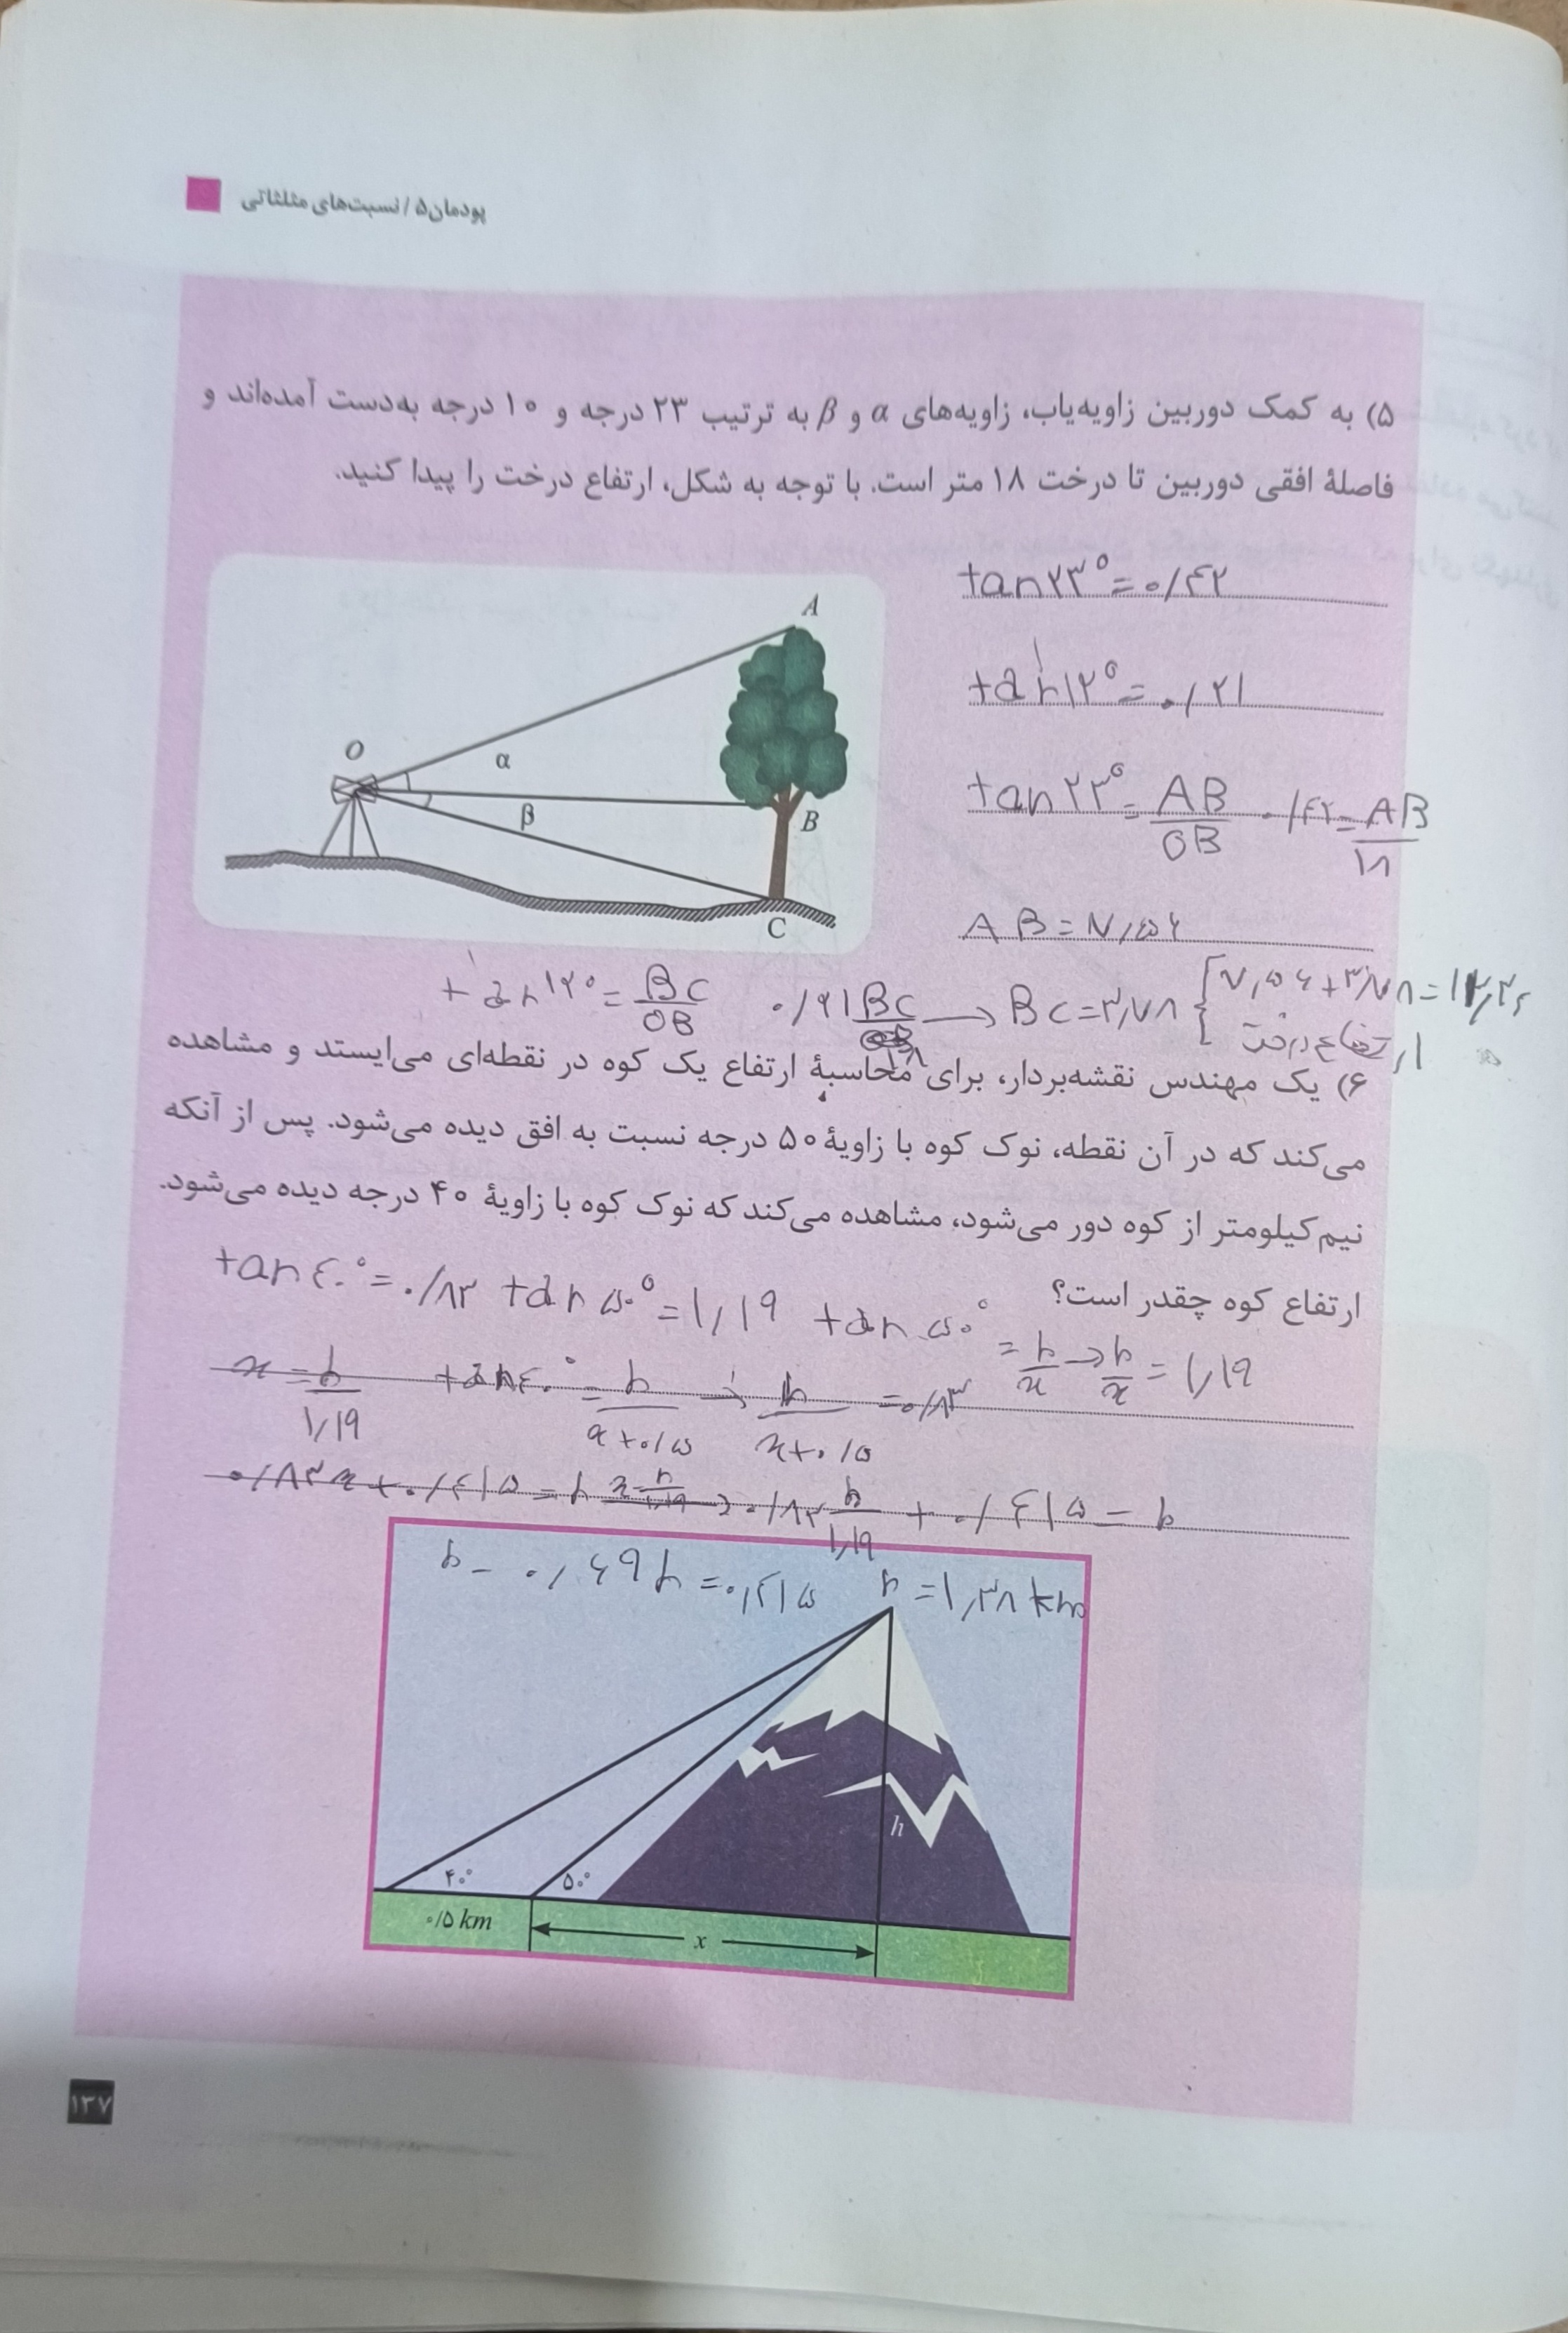 پودمان ۵ / نسبت‌های مثلثاتی
۵) به کمک دوربین زاویه‌یاب، زاویه‌های α و β به ترتیب ۲۳ درجه و ۱۰ درجه به‌دست آمده‌اند و
فاصلهٔ افقی دوربین تا درخت ۱۸ متر است. با توجه به شکل، ارتفاع درخت را پیدا کنید.
tan۲۳° = ۰/۴۲
tan۱۲° = ۰/۲۱
tan۲۳° = AB/OB ۰/۴۲ = AB/۱۸
AB = ۷/۵۶
A
O
α
β
B
C
tan۱۲° = BC/OB ۰/۲۱ BC/۱۸ → BC = ۳/۷۸ { ۷/۵۶ + ۳/۷۸ =
ارتفاع درخت
۶) یک مهندس نقشه‌بردار، برای محاسبهٔ ارتفاع یک کوه در نقطه‌ای می‌ایستد و مشاهده
می‌کند که در آن نقطه، نوک کوه با زاویهٔ ۵۰ درجه نسبت به افق دیده می‌شود. پس از آنکه
نیم‌کیلومتر از کوه دور می‌شود، مشاهده می‌کند که نوک کوه با زاویهٔ ۴۰ درجه دیده می‌شود.
ارتفاع کوه چقدر است؟
tan۴۰° = ۰/۸۳ tan۵۰° = ۱/۱۹ tan۵۰° = h/x → h/x = ۱/۱۹
x = h/۱/۱۹ tan۴۰° = h/x+۰/۵ → h/x+۰/۵ = ۰/۸۳
۰/۸۳x + ۰/۴۱۵ = h x = h/۱/۱۹ ۰/۸۳ h/۱/۱۹ + ۰/۴۱۵ = h
h - ۰/۶۹h = ۰/۴۱۵ h = ۱/۳۸ km
h
۴۰° ۵۰°
۰/۵ km
x
۱۳۷